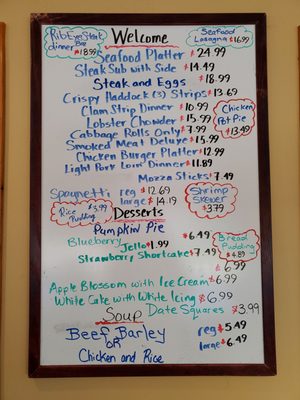 Welcome
Rib Eye Steak
Bar
dinner $18.99
Seafood
Lasagna $16.99
Seafood Platter $24.99
Steak Sub with Side $14.49
Steak and Eggs 18.99
Crispy Haddock (3) Strips $13.69
Clam Strip Dinner $10.99
Lobster Chowder $15.99
Cabbage Rolls Only $7.99
Smoked Meat Deluxe $15.99
Chicken Burger Platter $12.99
Light Pork Loin Dinner $11.89
Chicken
Pot Pie
$13.49
Mozza Sticks $7.49
Spaghetti reg $12.69
large $14.19
Shrimp
Skewer
$3.79
Rice $3.99
Pudding
Desserts
Pumpkin Pie
Blueberry $6.49
Jello $1.99
Strawberry Shortcake $7.49
Bread
Pudding
$4.89
$6.99
Apple Blossom with Ice Cream $6.99
White Cake with White Icing $6.99
Date Squares $3.99
Soup
Beef Barley
or
Chicken and Rice
reg $5.49
large $6.49